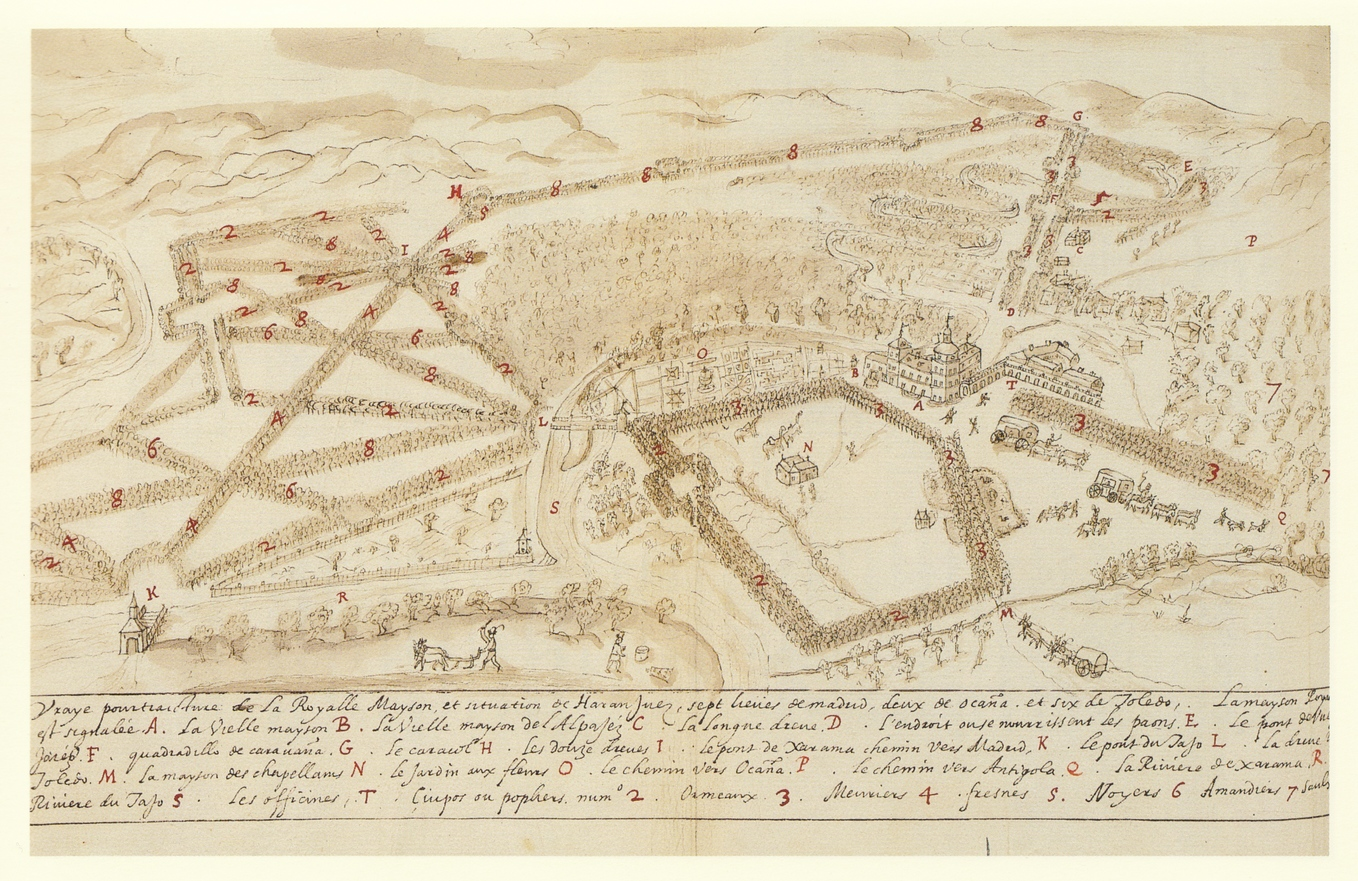 8 8 G
8 3 E
M 8 8 3 3
2 S F 5 2
2 2 8 4 3 3 C P
I
2 2 8 2 8
8 2 2 8 D
2 8 4 2
6 6
O
8 2 B
T
2 4 2 3 3 A 7
L 3
6 8 2 N 3
2 3 7
8 6 S Q
4 4 2 3
2 2
K R M
2
Vraye pourtraicture de La Royalle Mayson, et situation de Haran Juez, sept lieues de madrid, deux de ocaña . et six de Toledo, . La mayson
est signalée A . La Vielle mayson B . La Vielle mayson de l'Alpajez C . La longue dreue . D . L'endroit ou se nourrissent les paons . E . Le pont de
F . quadradillo de carauaña . G . Le caracol H . Les douze dreues I . Le pont de Xarama chemin vers Madrid, K . Le pont du Tajo L . La dreue
Toledo . M . La mayson des chapellains N . Le Jardin aux fleurs O . Le chemin vers Ocaña . P . Le chemin vers Antigola . Q . La Riviere de Xarama . R .
Riviere du Tajo S . Les officines, . T . ou popliers . num° 2 . Ormeaux . 3 . Meuriers 4 . fresnes 5 . Noyers 6 Amandiers 7